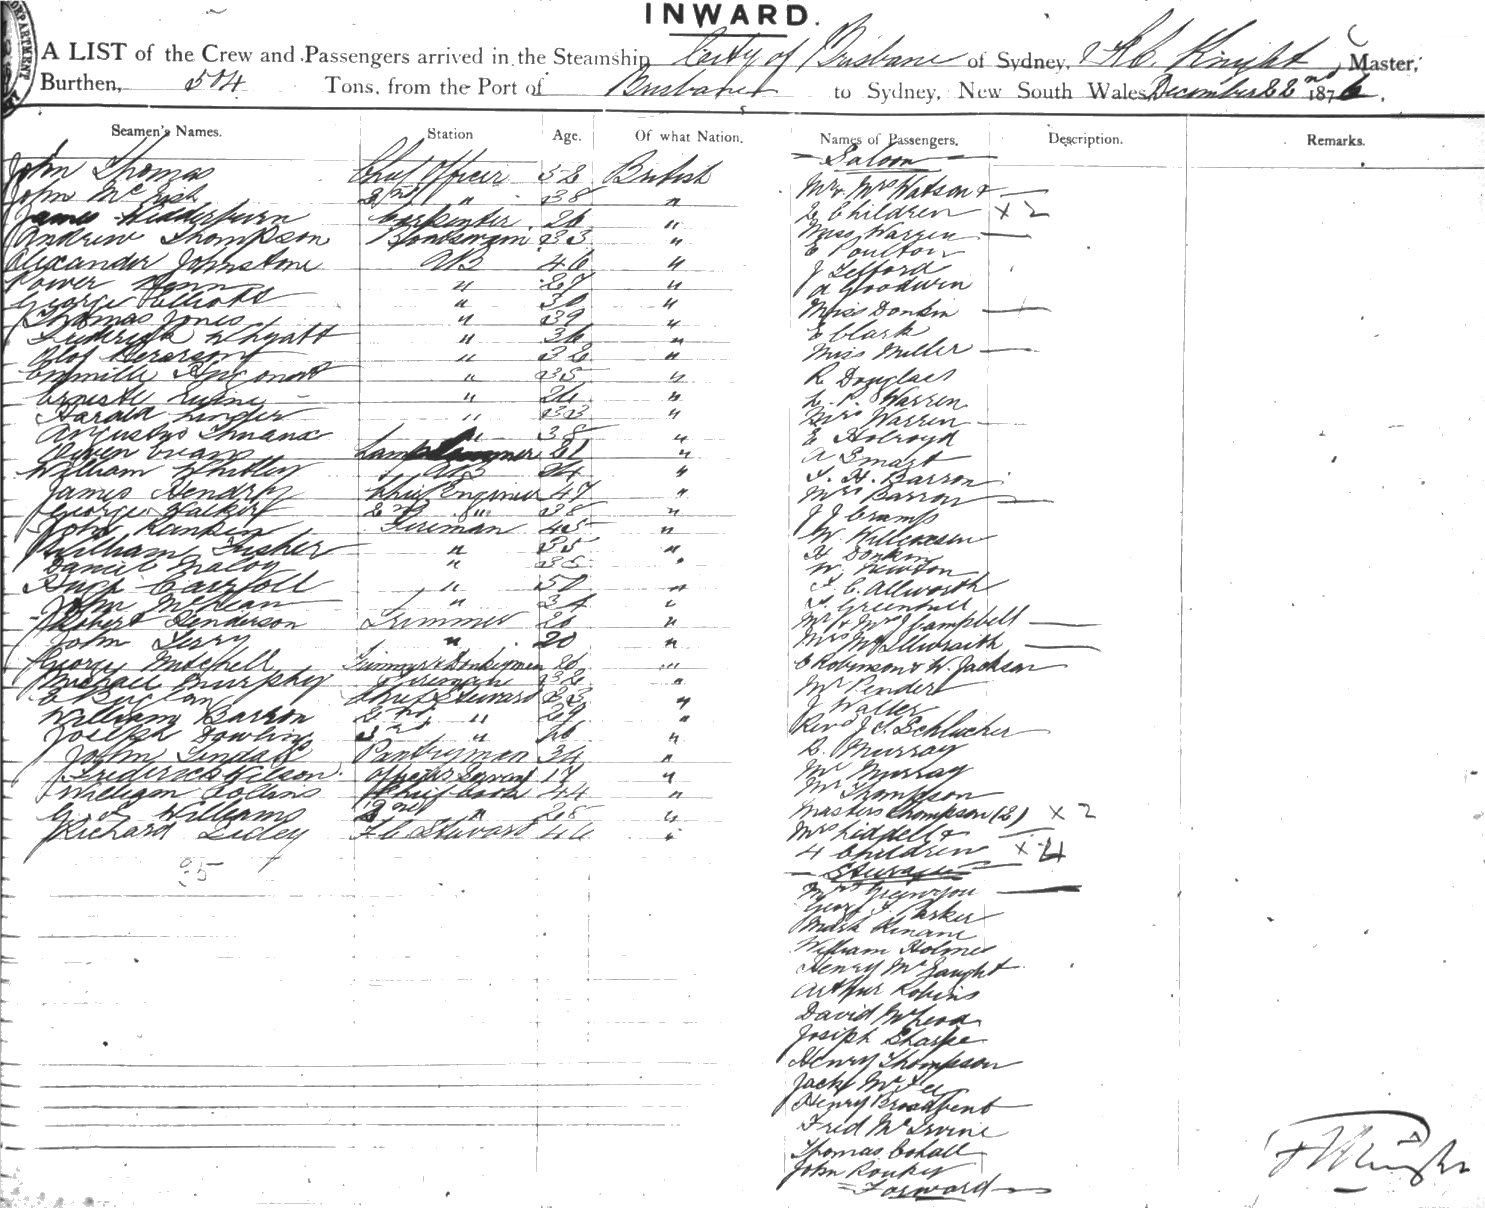 INWARD.
A LIST of the Crew and Passengers arrived in the Steamship City of Brisbane of Sydney, Knight Master,
Burthen, 504 Tons, from the Port of Brisbane to Sydney, New South Wales December 22nd 1876.
Seamen's Names. Station Age. Of what Nation. Names of Passengers. Description. Remarks.
John Thomas Chief Officer 52 British
John McFish 2nd " 38 "
James Carpenter 26 "
Andrew Thompson Boatswain 33 "
Alexander Johnstone AB 46 "
Power " 27 "
George Elliott " 30 "
Thomas Jones " 39 "
Frederick Whyatt " 36 "
Olof " 32 "
" 35 "
" 26 "
Harald Linder " 33 "
Augustus " 38 "
Owen Evans Lamp 21 "
William Whitley AB 24 "
James Hendry Chief Engineer 47 "
George 2nd " 38 "
John Rankin Fireman 45 "
William Fisher " 35 "
Daniel Maloy " 35 "
Hugh Carroll " 50 "
John McLean " 34 "
Robert Henderson Trimmer 26 "
John Terry " 20 "
George Mitchell Trimmer & Donkeyman 26 "
Michael Murphy Fireman 32 "
E Chief Steward 33 "
William Barron 2nd " 29 "
Joseph Dowling 3rd " 26 "
John Tindall Pantryman 34 "
Frederick Wilson Officers Servant 17 "
William Collins Chief Cook 44 "
G Williams 2nd " 28 "
Richard Lidley F.C. Steward 46 "
35
Saloon
Mr & Mrs Watson &
2 Children x 2
Miss Warren
E Poulton
J Telford
A Goodwin
Miss Donkin
E Clark
Miss Miller
R Douglas
L. P. Warren
Mrs Warren
E Holroyd
A Smart
T. H. Barron
Mrs Barron
J J Cramp
W Wilkinson
H Donkin
W Newton
J C Allworth
J Greenhill
Mr & Mrs J Campbell
Mrs McIllwraith
C Robinson & W. Jackson
Mr Pender
J Waller
Revd J. G. Schlucher
R. Murray
Mr Murray
Mr Thompson
Masters Thompson (2) x 2
Mrs Liddell &
4 Children x 4
Steerage
Mrs
Geo Parker
Mark Kinane
William Holmes
Henry McGaught
Arthur Robins
David McLeod
Joseph Sharpe
Henry Thompson
Jack McFee
Henry Broadbent
Fred McIrvine
Thomas Cohall
John
Forward